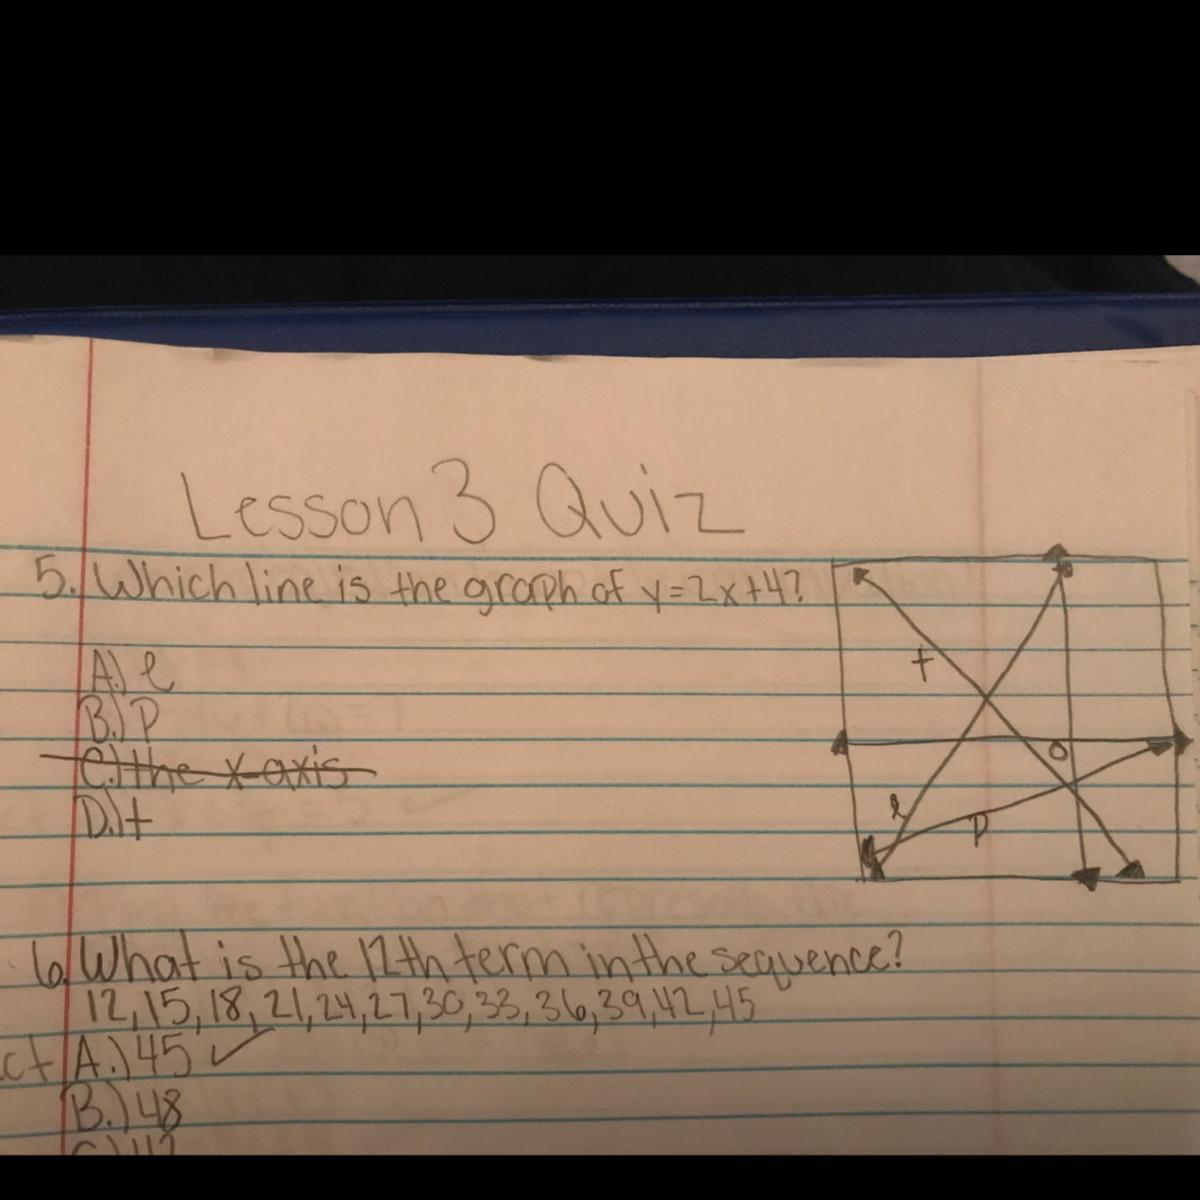 Lesson 3 Quiz
5. Which line is the graph of y=2x+4?
A.) l
B.) p
C.) the x-axis
D.) t
t
O
l
p
6. What is the 12th term in the sequence?
12, 15, 18, 21, 24, 27, 30, 33, 36, 39, 42, 45
ct A.) 45 ✓
B.) 48